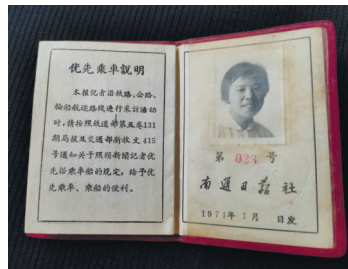 优先乘車説明
本报記者沿鉄路、公路、
輪船航运路线进行采訪活动
时,請按照鉄道部第五卷131
期局报及交通部新收文415
号通知关于照顾新聞記者优
先搭乘車船的規定,給予优
先乘車、乘船的便利。
第 028 号
南通日報社
1971年1月 日发